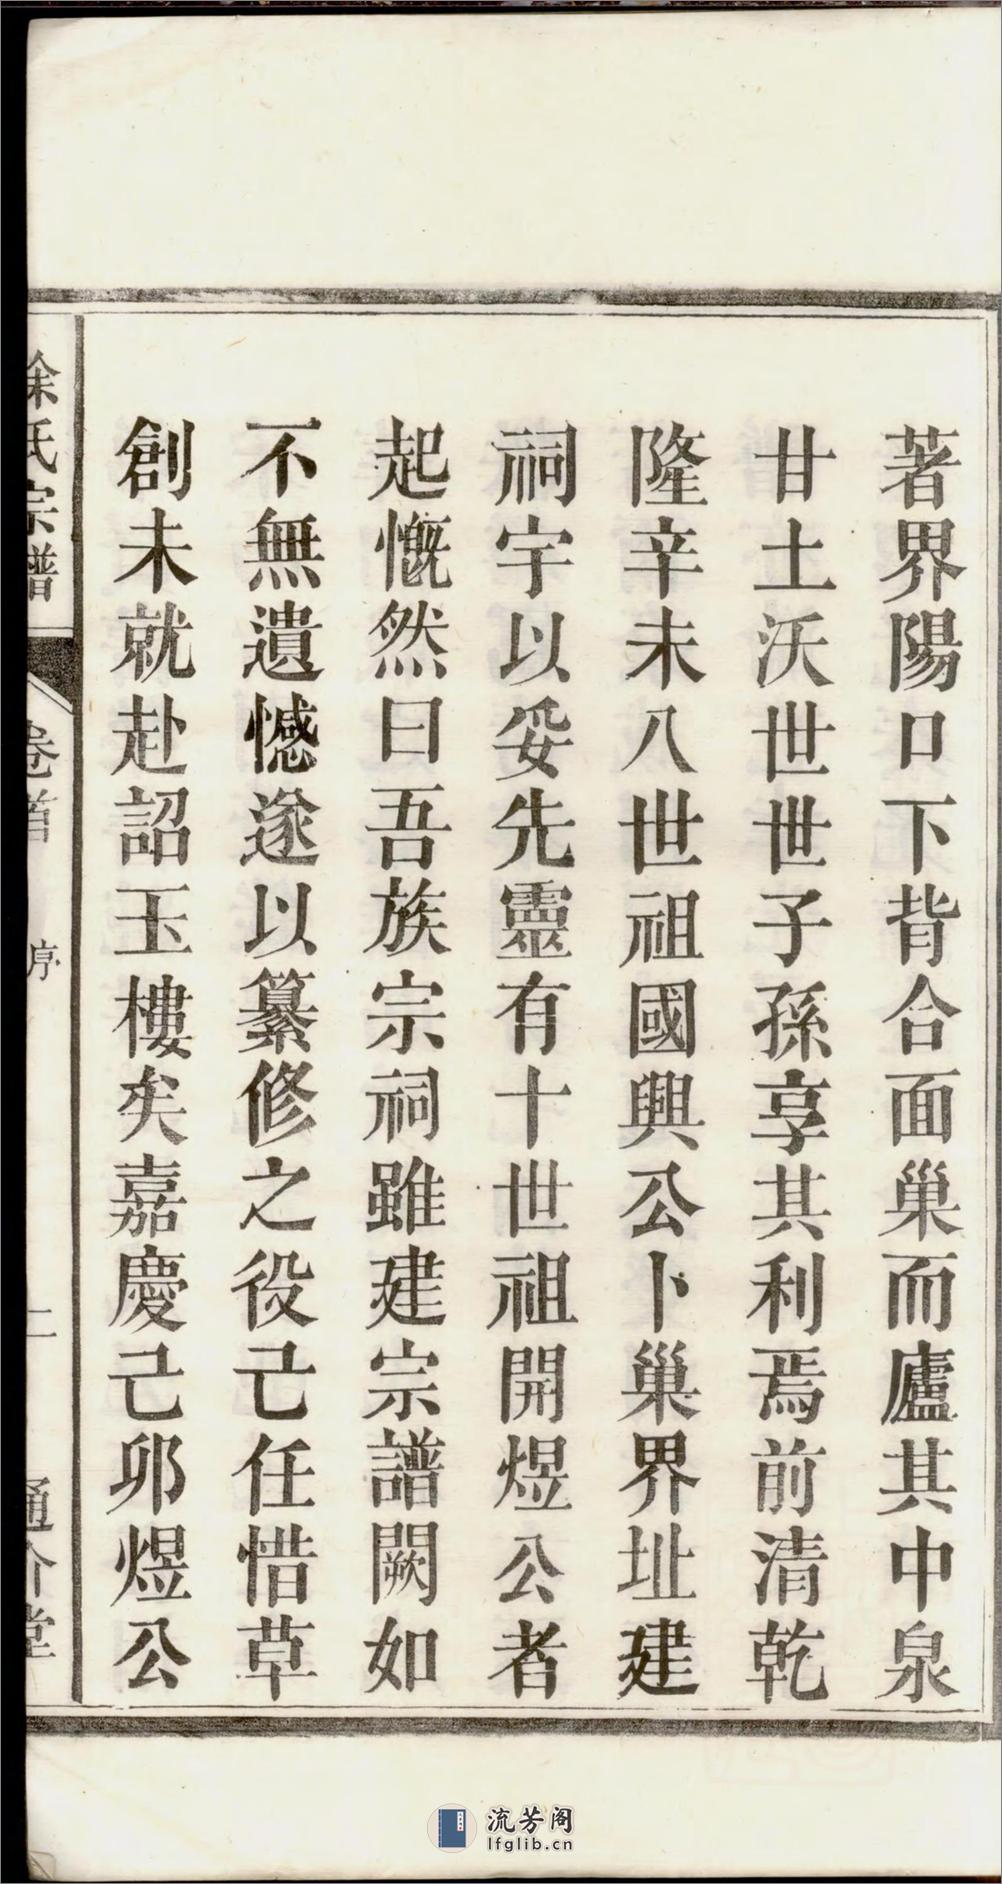 著界陽口下背合面巢而廬其中泉
甘土沃世世子孫享其利焉前清乾
隆辛未八世祖國興公卜巢界址建
祠宇以妥先靈有十世祖開煜公者
起慨然曰吾族宗祠雖建宗譜闕如
不無遺憾遂以纂修之役己任惜草
創未就赴詔玉樓矣嘉慶己卯煜公
徐氏宗譜
卷首
序
二
通介堂
流芳阁
lfglib.cn